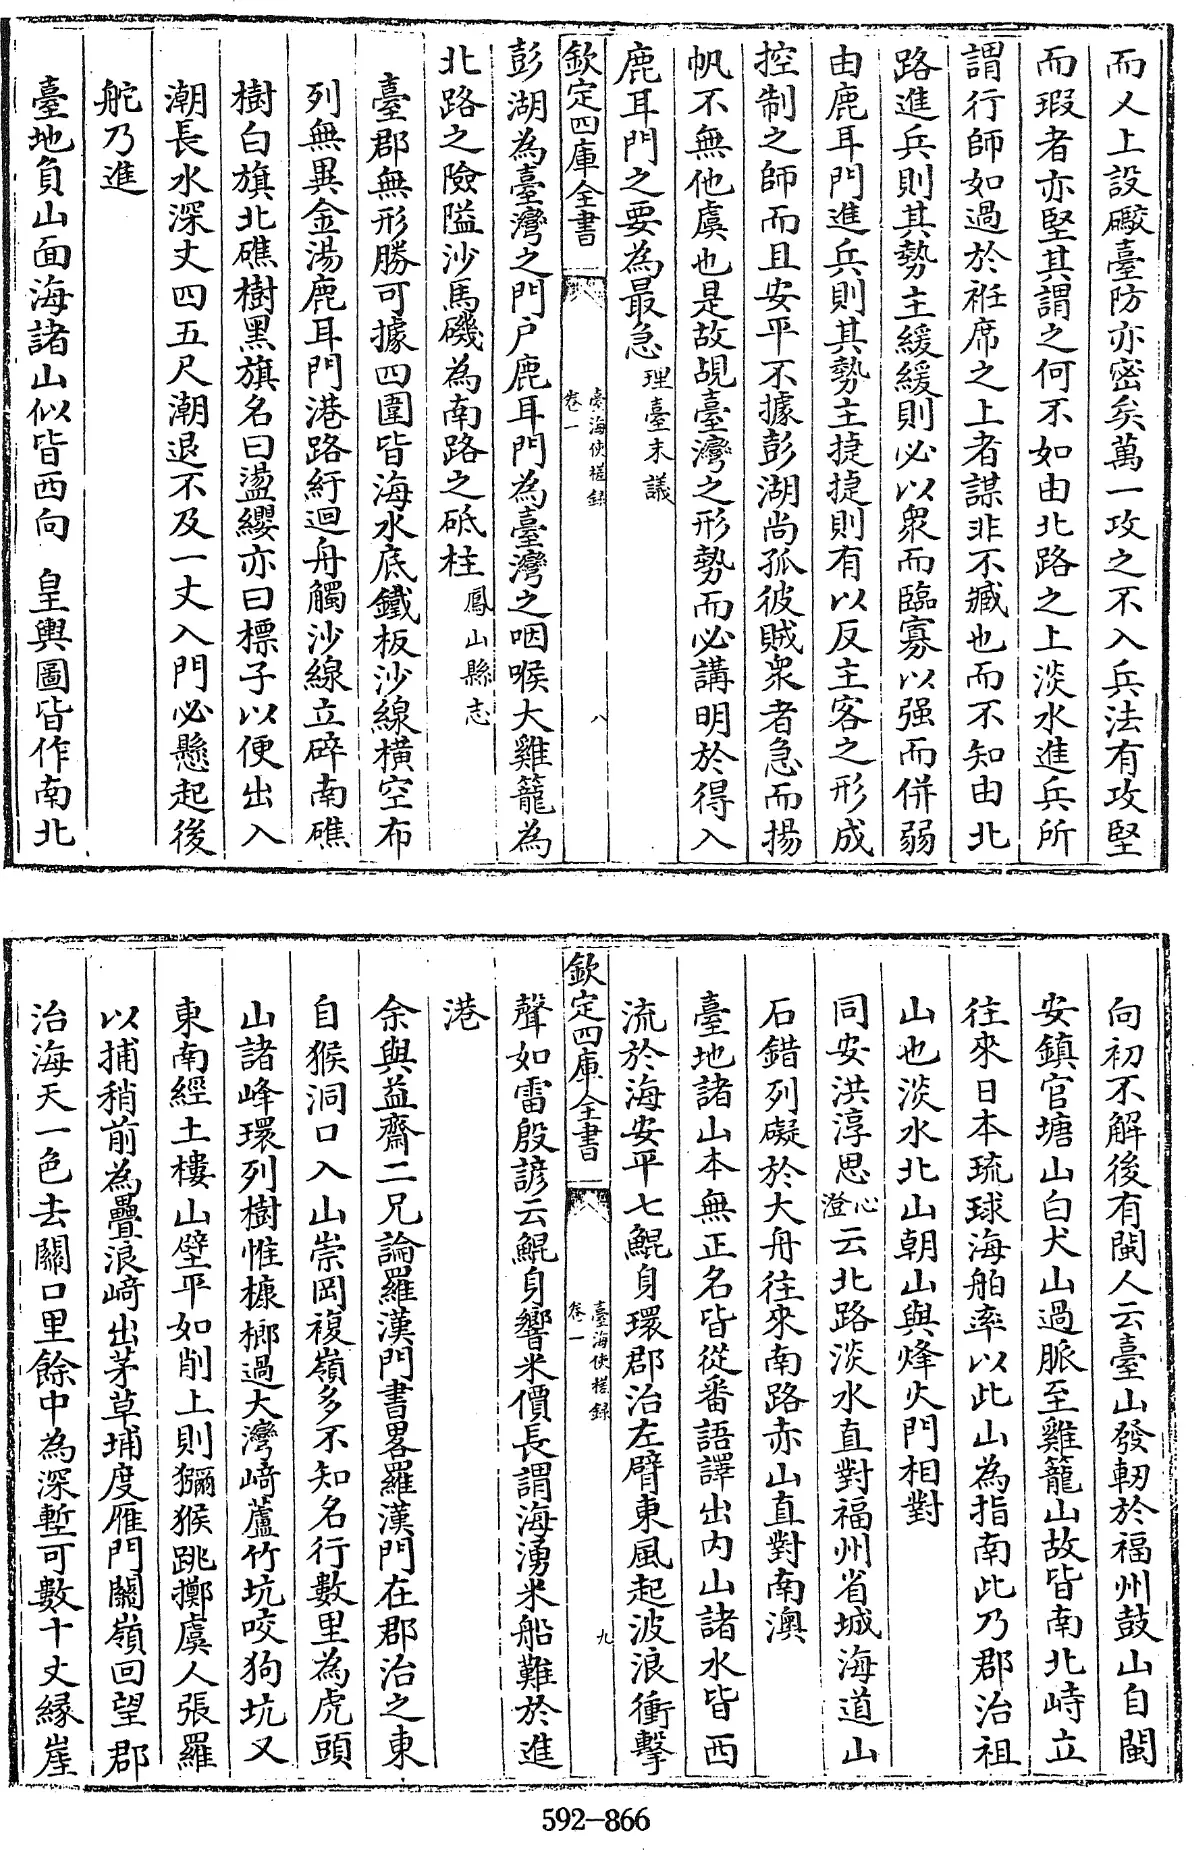 而乂上設礮臺防亦密矣萬一攻之不入兵法有攻堅
而瑕者亦堅其謂之何不如由北路之上淡水進兵所
謂行師如過於袵席之上者謀非不臧也而不知由北
路進兵則其勢主緩緩則必以衆而臨寡以强而併弱
由鹿耳門進兵則其勢主捷捷則有以反主客之形成
控制之師而且安平不據彭湖尚孤彼賊衆者急而揚
帆不無他虞也是故覘臺灣之形勢而必講明於得入
鹿耳門之要為最急理臺末議
欽定四庫全書
臺海使槎錄
卷一
八
彭湖為臺灣之門户鹿耳門為臺灣之咽喉大雞籠為
北路之險隘沙馬磯為南路之砥柱鳳山縣志
臺郡無形勝可據四圍皆海水底鐵板沙線橫空布
列無異金湯鹿耳門港路紆迴舟觸沙線立碎南礁
樹白旗北礁樹黑旗名曰盪纓亦曰標子以便出入
潮長水深丈四五尺潮退不及一丈入門必懸起後
舵乃進
臺地負山面海諸山似皆西向 皇輿圖皆作南北
向初不解後有閩人云臺山發軔於福州鼓山自閩
安鎮官塘山白犬山過脈至雞籠山故皆南北峙立
往來日本琉球海舶率以此山為指南此乃郡治祖
山也淡水北山朝山與烽火門相對
同安洪淳思心澄云北路淡水直對福州省城海道山
石錯列礙於大舟往來南路赤山直對南澳
臺地諸山本無正名皆從番語譯出内山諸水皆西
流於海安平七鯤身環郡治左臂東風起波浪衝擊
欽定四庫全書
臺海使槎錄
卷一
九
聲如雷殷諺云鯤身響米價長謂海湧米船難於進
港
余與益齋二兄論羅漢門書畧羅漢門在郡治之東
自猴洞口入山崇岡複嶺多不知名行數里為虎頭
山諸峰環列樹惟槺榔過大灣崎蘆竹坑咬狗坑又
東南經土樓山壁平如削上則獼猴跳擲虞人張羅
以捕稍前為疊浪崎出茅草埔度雁門關嶺回望郡
治海天一色去關口里餘中為深塹可數十丈緣崖
592-866